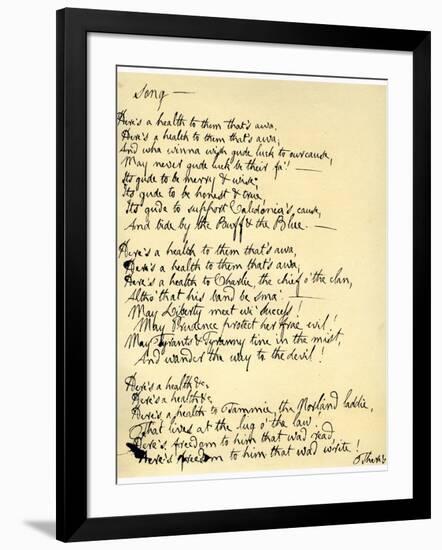 Song —
Here's a health to them that's awa,
Here's a health to them that's awa;
And wha winna wish gude luck to our cause,
May never gude luck be their fa'! —
Its gude to be merry & wise,
Its gude to be honest & true,
Its gude to support Caledonia's cause,
And bide by the Buff & the Blue. —
Here's a health to them that's awa,
Here's a health to them that's awa;
Here's a health to Charlie, the chief o' the clan,
Altho' that his band be sma'. —
May Liberty meet wi' success!
May Prudence protect her frae evil!
May Tyrants & Tyranny tine in the mist,
And wander the way to the devil!
Here's a health &c.
Here's a health &c.
Here's a health to Tammie, the Norland laddie,
That lives at the lug o' the law.
Here's freedom to him that wad read,
Here's freedom to him that wad write!